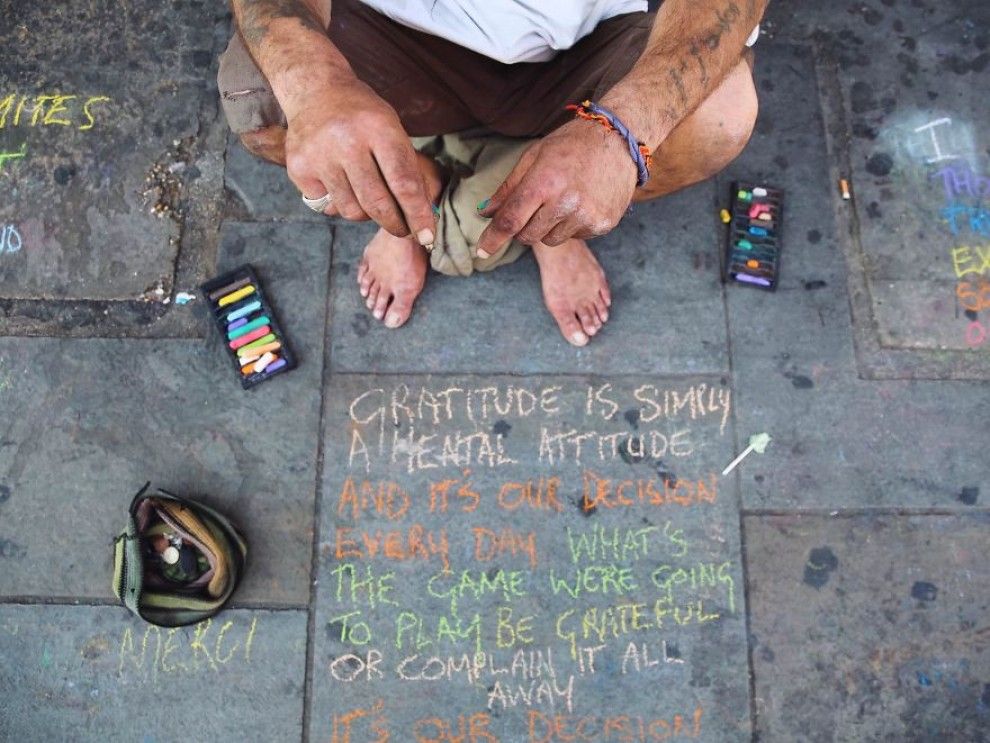 MITES
I
GRATITUDE IS SIMPLY
A MENTAL ATTITUDE
AND IT'S OUR DECISION
EVERY DAY WHAT'S
THE GAME WERE GOING
TO PLAY BE GRATEFUL
OR COMPLAIN IT ALL
AWAY
IT'S OUR DECISION
MERCI